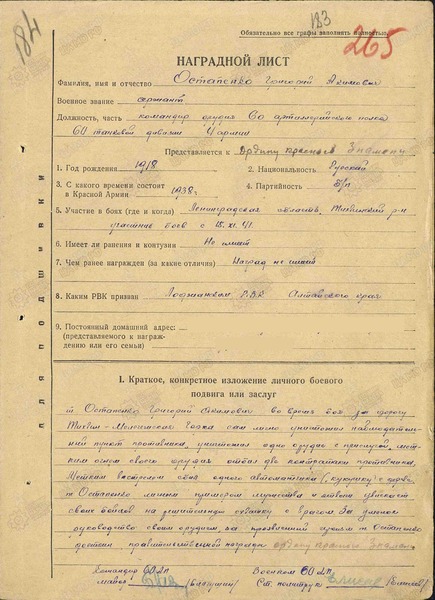 184
183
Обязательно все графы заполнять полностью.
265
НАГРАДНОЙ ЛИСТ
Фамилия, имя и отчество Остапенко Григорий Акимович
Военное звание сержант
Должность, часть командир орудия 60 артиллерийского полка
60 танковой дивизии 4 армии
Представляется к ордену Красного Знамени
1. Год рождения 1918 2. Национальность Русский
3. С какого времени состоит в Красной Армии 1938 г. 4. Партийность б/п
5. Участие в боях (где и когда) Ленинградская область, Тихвинский р-н
участник боев с 15.XI.41
6. Имеет ли ранения и контузии Не имеет
7. Чем ранее награжден (за какие отличия) Наград не имеет
8. Каким РВК призван РВК Алтайского края
9. Постоянный домашний адрес:
(представляемого к награж-
дению или его семьи)
ДЛЯ ПОДШИВКИ
I. Краткое, конкретное изложение личного боевого
подвига или заслуг
т. Остапенко Григорий Акимович во время боя за дорогу
Тихвин – сам лично уничтожил наблюдатель-
ный пункт противника, уничтожил одно орудие с прислугой, мет-
ким огнем своего орудия отбил две контратаки противника.
Метким выстрелом сбил одного автоматчика „кукушку" с дерева.
т. Остапенко личным примером мужества и отваги увлекает
своих бойцов на решительную схватку с врагом. За умелое
руководство своим орудием, за героизм т. Остапенко
достоин правительственной награды ордену Красного Знамени
Командир 60 ап Военком 60 ап
майор Ст. политрук